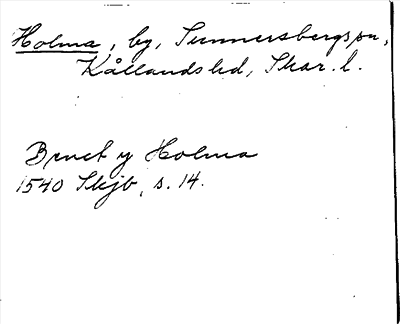 Holma, by, Sunnersbergs sn,
Kållands hd, Skar. l.
Bmeb y Holma
1540 Skjb, s. 14.